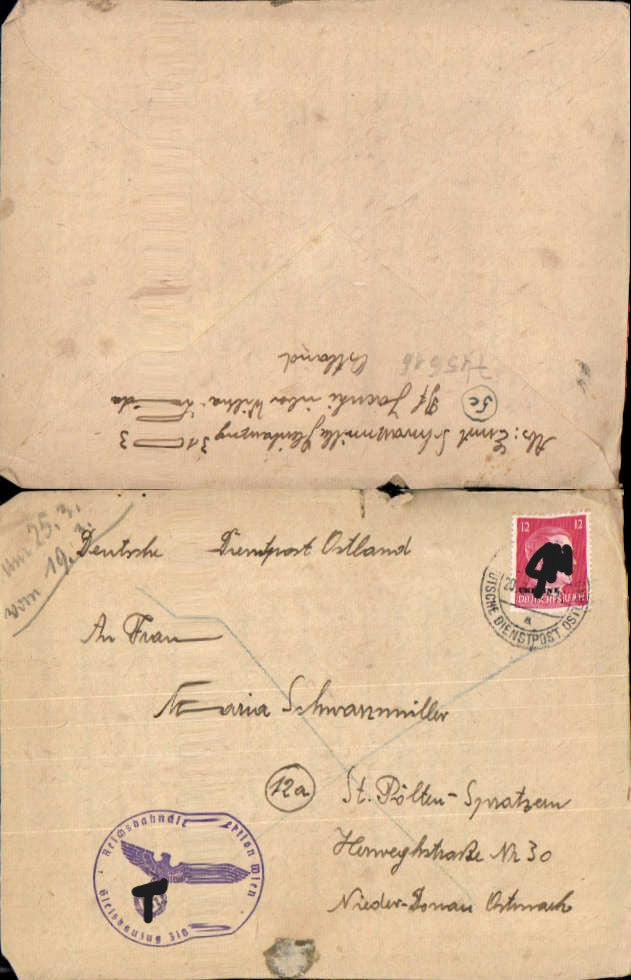 Abs: Ernst Schwarzmüller Gleisbauzug 310
3
5c
über Wilna
Ostland
715616
25.3.
vom 19.3.
Deutsche Dienstpost Ostland
12 12
UKRAINE
DEUTSCHES REICH
DEUTSCHE DIENSTPOST OSTLAND
a
An Frau
Maria Schwarzmüller
12a
St. Pölten-Spratzern
Herweghstraße Nr 30
Nieder-Donau Ostmark
Reichsbahndirektion Wien
Gleisbauzug 310